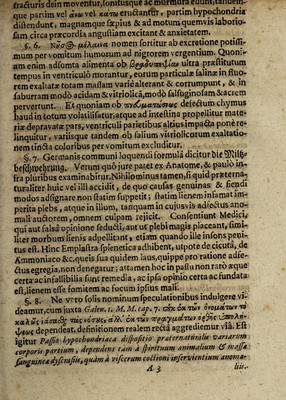 fracturis dein moventur, sonitusque ac murmura edunt, tandem-
que partim vel ἄνω vel κάτω eructantur, partim hypochondria
distendunt, magnamque sæpius & ad motum quemvis laborio-
sam circa præcordia angustiam excitant & anxietatem.
§. 6. Νόσος μέλαινα nomen sortitur ab excretione potissi-
mum per vomitum humorum ad nigrorem vergentium. Quoni-
am enim adsumta alimenta ob βραδυπεψίαν ultra præstitutum
tempus in ventriculo morantur, eorum particulæ salinæ in fluo-
rem exaltatæ totam massam varie alterant & corrumpunt, & in
saburram modo acidam & vitriolicā, modo salsuginosam & acrem
pervertunt. Et quoniam ob πνευματώσεως defectum chymus
haud in totum volatilisatur, atque ad intestina propellitur mate-
riæ depravatæ pars, ventriculi parietibus altius impacta ponè re-
linquitur, variisque tandem ob salium vitriolicorum exaltatio-
nem tincta coloribus per vomitum excluditur.
§. 7. Germanis communi loquendi formula dicitur die Miltz-
beschwehrung. Verum quo jure patet ex Anatome, & paulo in-
fra pluribus examinabitur. Nihilominus tamen, si quid præterna-
turaliter huic vel illi accidit, de quo causas genuinas & fiendi
modos adsignare non statim suppetit, statim lienem insamat im-
perita plebs, atque in illum, tanquam in cujusvis adfectus ano-
mali auctorem, omnem culpam rejicit. Consentiunt Medici,
qui aut falsâ opinione seducti, aut ut plebi magis placeant, simi-
liter morbum lienis adpellitant, etiam quando ille insons peni-
tus est. Hinc Emplastra splenetica adhibent, utpote de cicuta, de
Ammoniaco &c. queis sua quidem laus, quippe pro ratione adfe-
ctus egregia, non denegatur; attamen hoc in passu non raro æque
certa ac infallibilia sunt remedia, ac ipsa opinio certa ac fundata
est, lienem esse fomitem ac focum ipsius mali.
§. 8. Ne vero solis nominum speculationibus indulgere vi-
deamur, cum juxta Galen. 1. M. M. cap. 7. ἐκ τῶν ὀνομάτων
καλῶς dependeat, definitionem realem recta aggrediemur viâ. Est
igitur Passio hypochondriaca dispositio præternaturalis variarum
corporis partium, dependens tam à spirituum animalium & massæ
sanguineæ dyscrasiis, quàm à viscerum coctioni inservientium anoma-
A 3 liis.